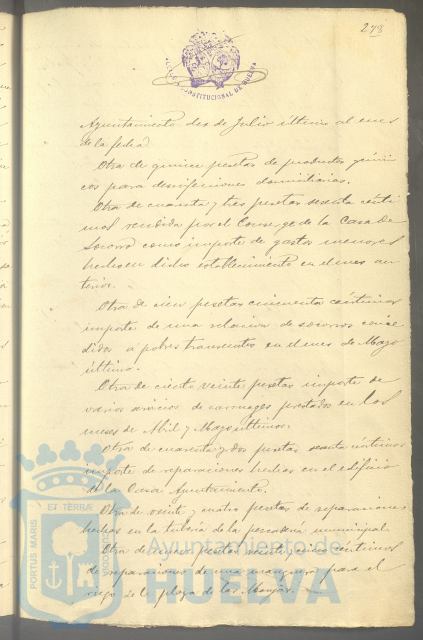 278
ALCALDIA CONSTITUCIONAL DE HUELVA
Ayuntamiento desde Julio último al mes
de la fecha
Otra de quince pesetas de productos quimi
cos para desinfecciones domiciliarias.
Otra de cuarenta y tres pesetas sesenta centi
mos rendida por el Conserge de la Casa de
Socorro como importe de gastos menores
hechos en dicho establecimiento en el mes an
terior.
Otra de cien pesetas cincuenta céntimos
importe de una relacion de socorros conce
didos a pobres transeuntes en el mes de Mayo
último.
Otra de ciento veinte pesetas importe de
varios servicios de carruages prestados en los
meses de Abril y Mayo últimos.
Otra de cuarenta y dos pesetas sesenta céntimos
importe de reparaciones hechas en el edificio
de la Casa Ayuntamiento.
Otra de veinte y cuatro pesetas de reparaciones
hechas en la tubería de la pescaderia municipal
Otra de cinco pesetas veinte y cinco céntimos
de reparaciones de una manguera para el
riego de la plaza de las Monjas.
PORTUS MARIS
ET TERRAE
CUSTODIA
Ayuntamiento de
HUELVA